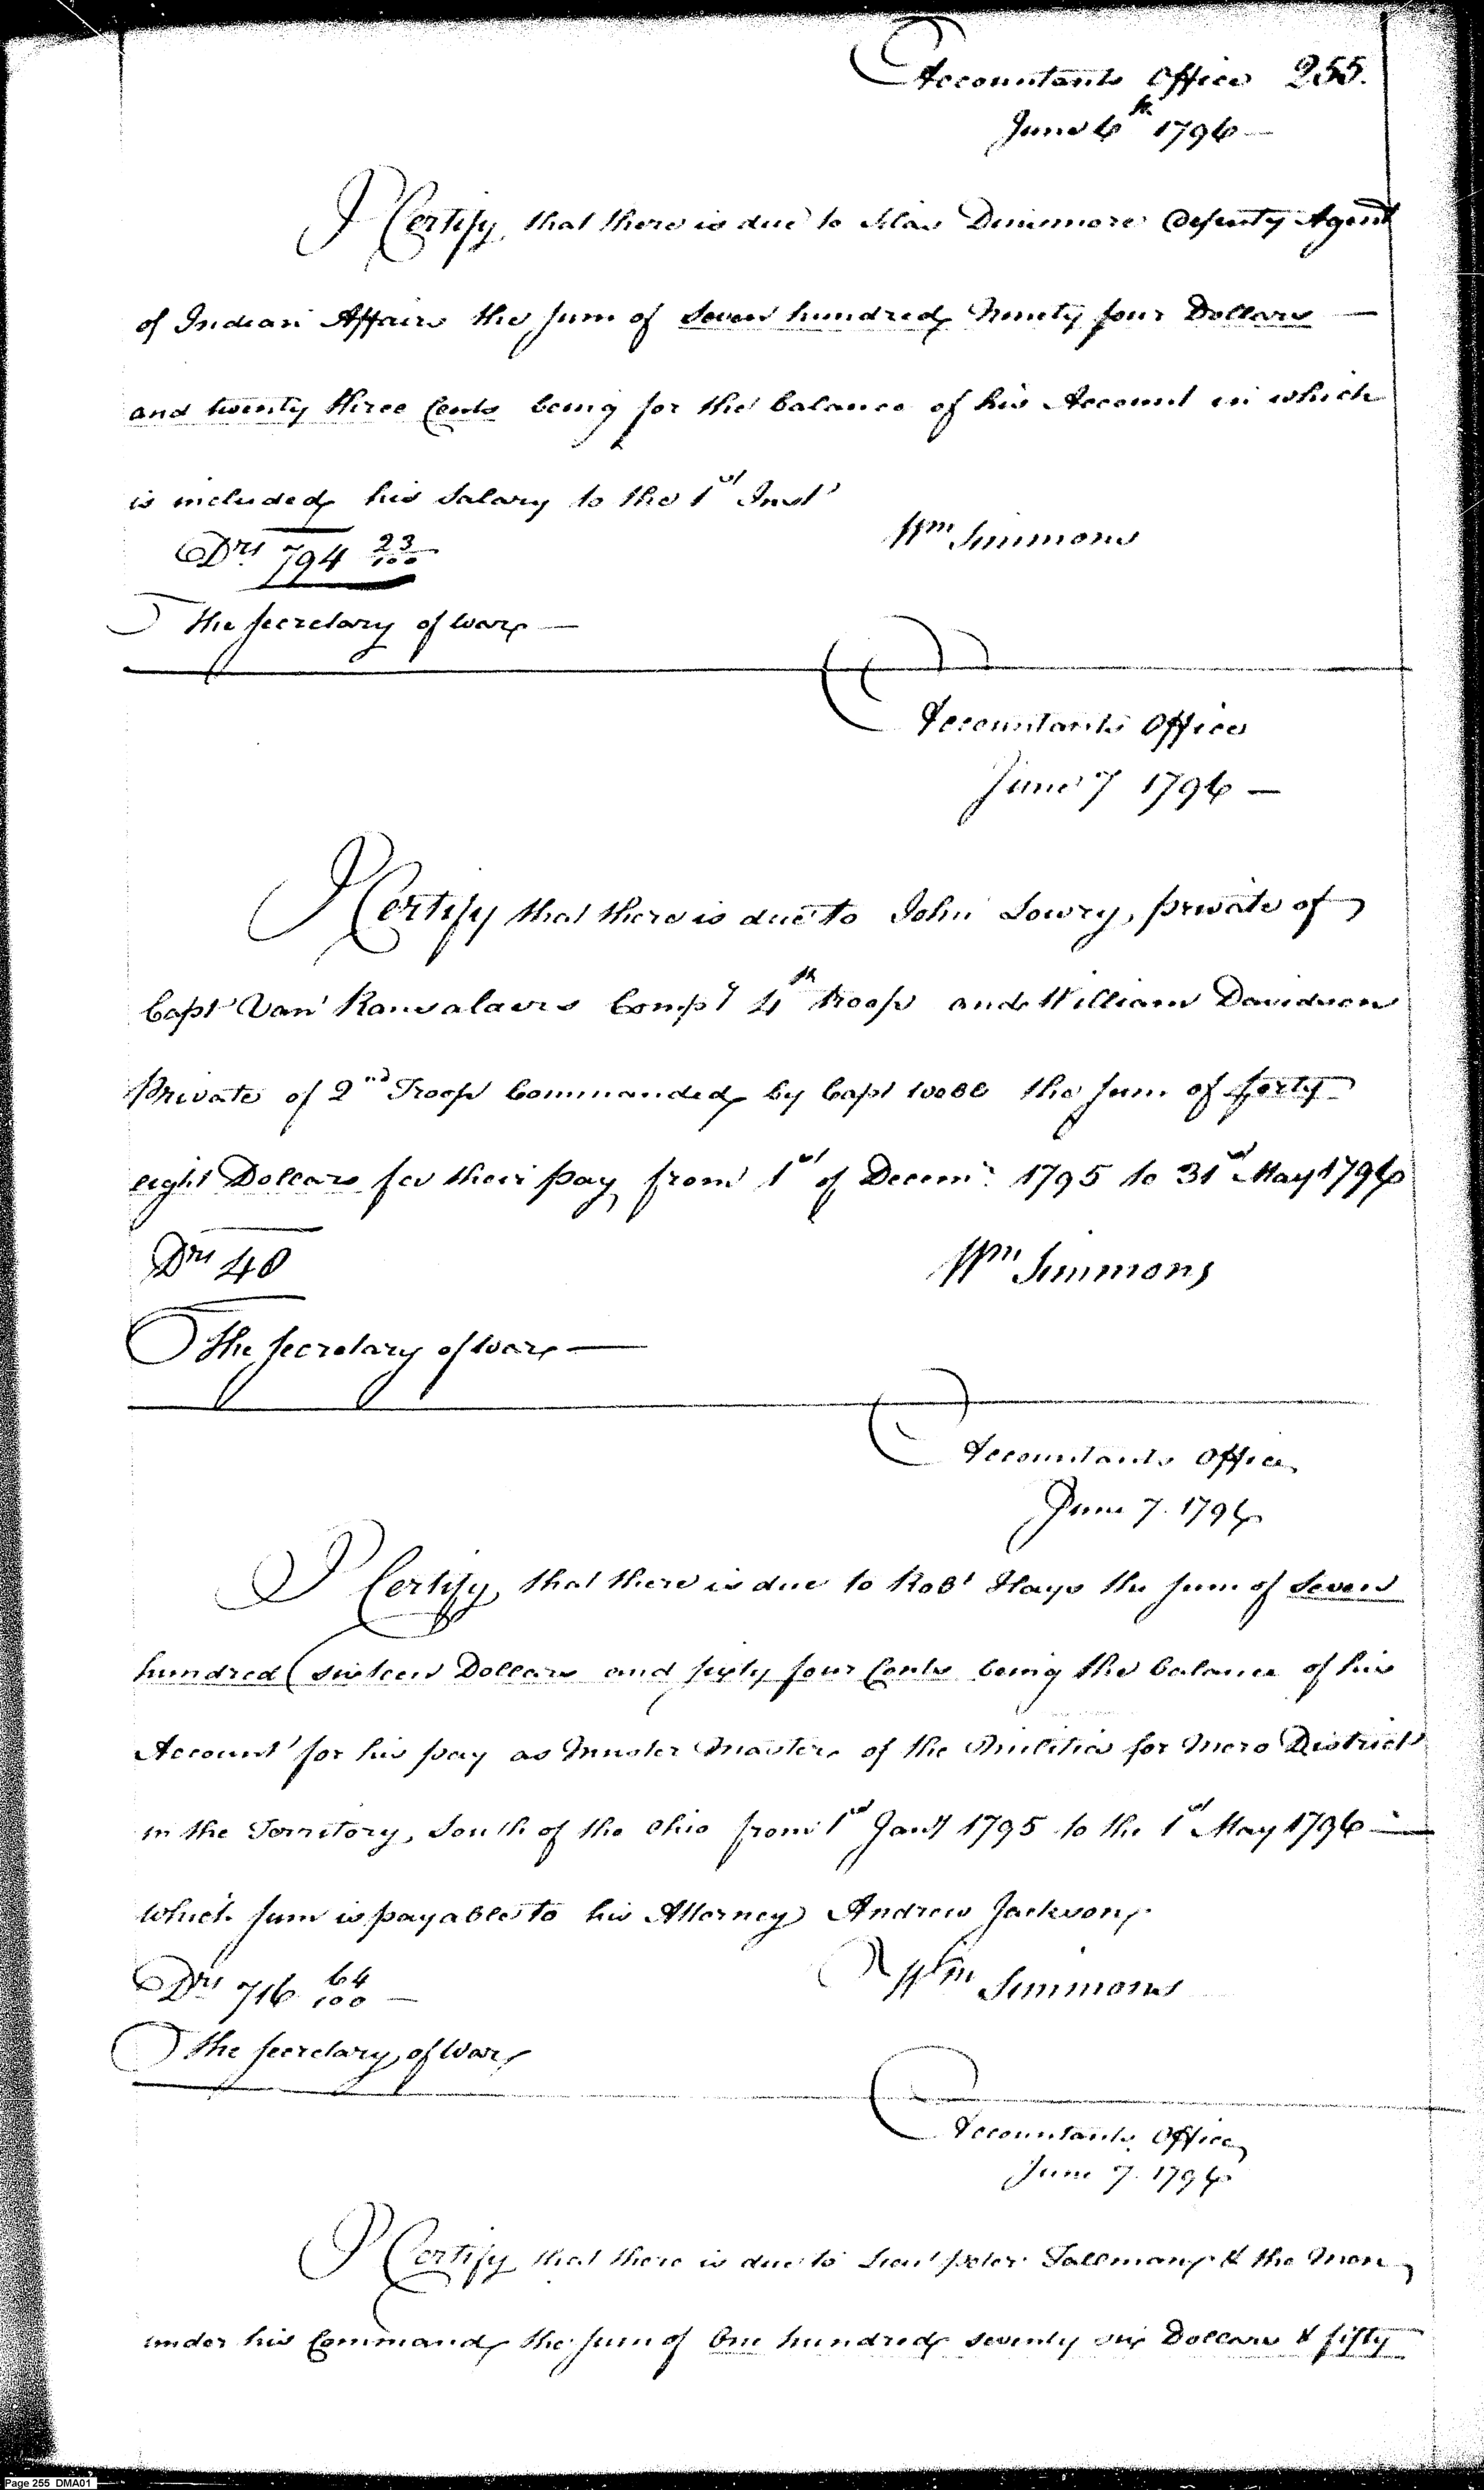 Accountants Office 255.
June 6th 1796 —
I Certify, that there is due to Silas Dinsmore Deputy Agent
of Indian Affairs the sum of Seven hundred Ninety four Dollars —
and twenty three Cents being for the balance of his Account in which
is included his Salary to the 1st Inst
Drs 794 23/100
Wm Simmons
The Secretary of War —
Accountants Office
June 7 1796 —
I Certify that there is due to John Lowry, private of
Capt Van Ransalaers Compy 4th troop and William Davidson
Private of 2nd Troop Commanded by Capt Webb the sum of forty
eight Dollars for their pay from 1st of Decemr 1795 to 31st May 1796
Drs 48
Wm Simmons
The Secretary of War —
Accountants Office
June 7. 1796
I Certify, that there is due to Robt Hays the sum of Seven
hundred sixteen Dollars and sixty four Cents being the balance of his
Account for his pay as Muster Master of the Militia for Mero District
in the Territory, South of the Ohio from 1st Jany 1795 to the 1st May 1796 —
which sum is payable to his Attorney Andrew Jackson
Drs 716 64/100 —
Wm Simmons
The Secretary of War
Accountants Office
June 7. 1796
I Certify that there is due to Lieut Peter Tallman & the Men
under his Command the sum of One hundred seventy six Dollars & fifty
Page 255 DMA01